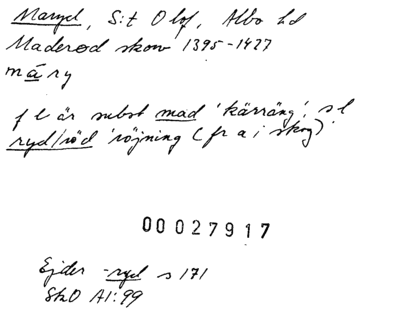 Maryd, S:t Olof, Albo hd
Maderød skou 1395-1427
måry
f l är subst mad 'kärräng', s l
ryd/röd 'röjning (fr a i skog)'
00027917
Ejder -ryd s 171
SkO A1:99